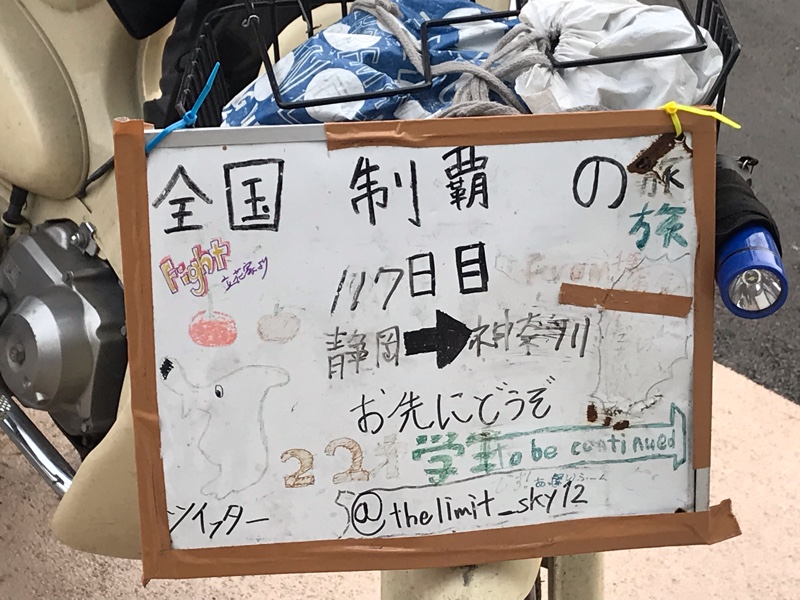 全国 制覇 の旅
旅
Fight
立花家より
117日目
静岡➡神奈川
お先にどうぞ
22才 学生
to be continued
ツイッター @thelimit_sky12